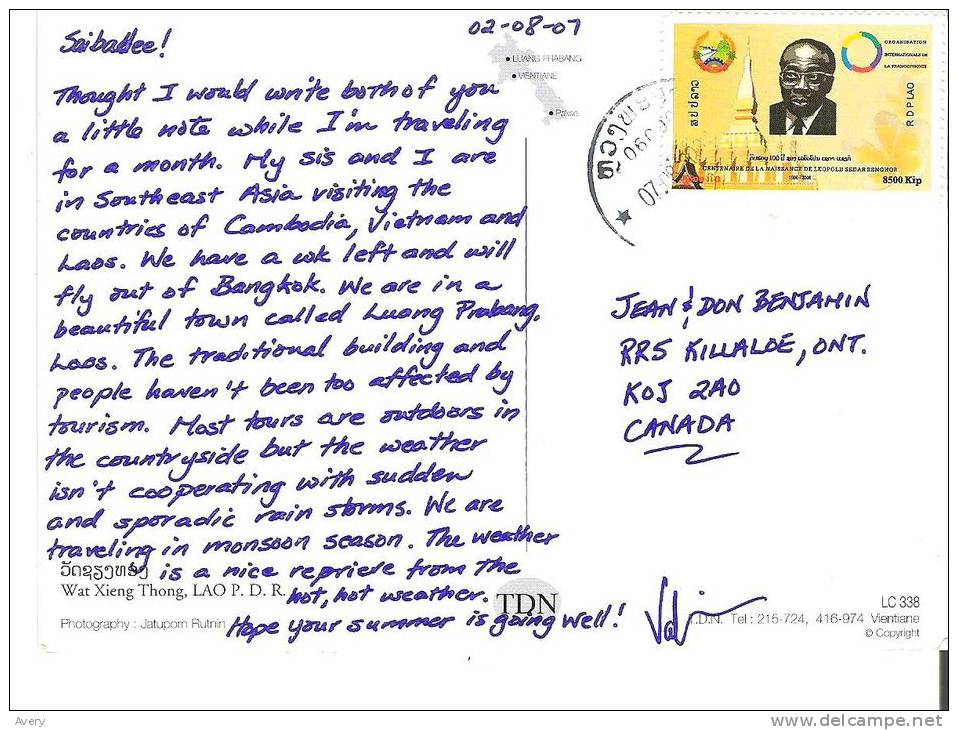 02-08-07
Saibaidee!
Thought I would write both of you
a little note while I'm traveling
for a month. My sis and I are
in Southeast Asia visiting the
countries of Cambodia, Vietnam and
Laos. We have a wk left and will
fly out of Bangkok. We are in a
beautiful town called Luang Prabang,
Laos. The traditional building and
people haven't been too affected by
tourism. Most tours are outdoors in
the countryside but the weather
isn't cooperating with sudden
and sporadic rain storms. We are
traveling in monsoon season. The weather
is a nice reprieve from the
hot, hot weather.
Hope your summer is going well!
ວັດຊຽງທອງ
Wat Xieng Thong, LAO P. D. R.
Photography : Jatuporn Rutnin
LUANG PHABANG
VIENTIANE
Pakse
ORGANISATION
INTERNATIONALE DE
LA FRANCOPHONIE
ສປປ ລາວ
R D P LAO
CENTENAIRE DE LA NAISSANCE DE LEOPOLD SEDAR SENGHOR
8500 Kip
JEAN & DON BENJAMIN
RR5 KILLALOE, ONT.
KOJ 2AO
CANADA
TDN
LC 338
T.D.N. Tel : 215-724, 416-974 Vientiane
© Copyright
Avery
www.delcampe.net